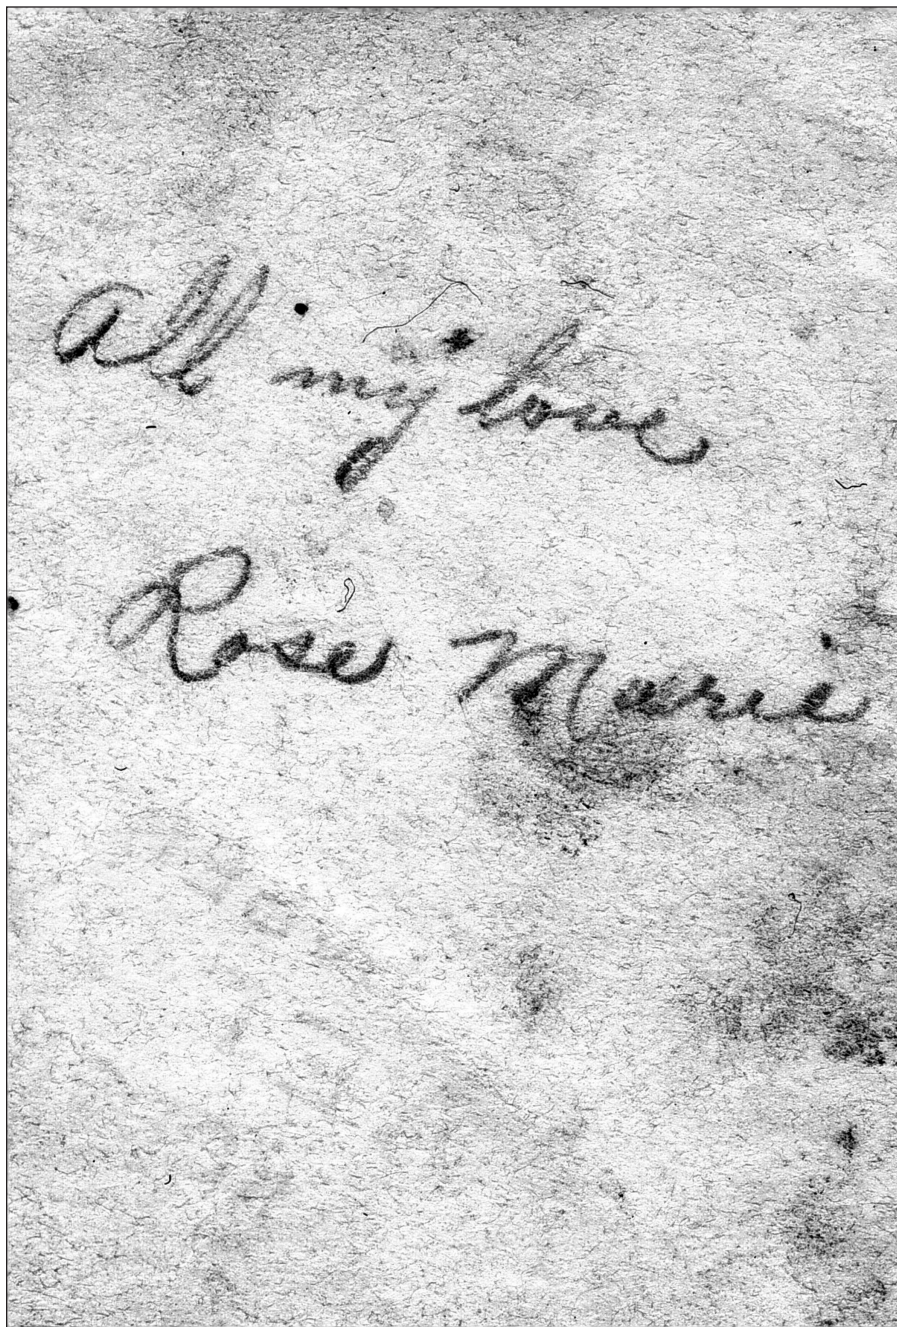 All my love
Rose Marie